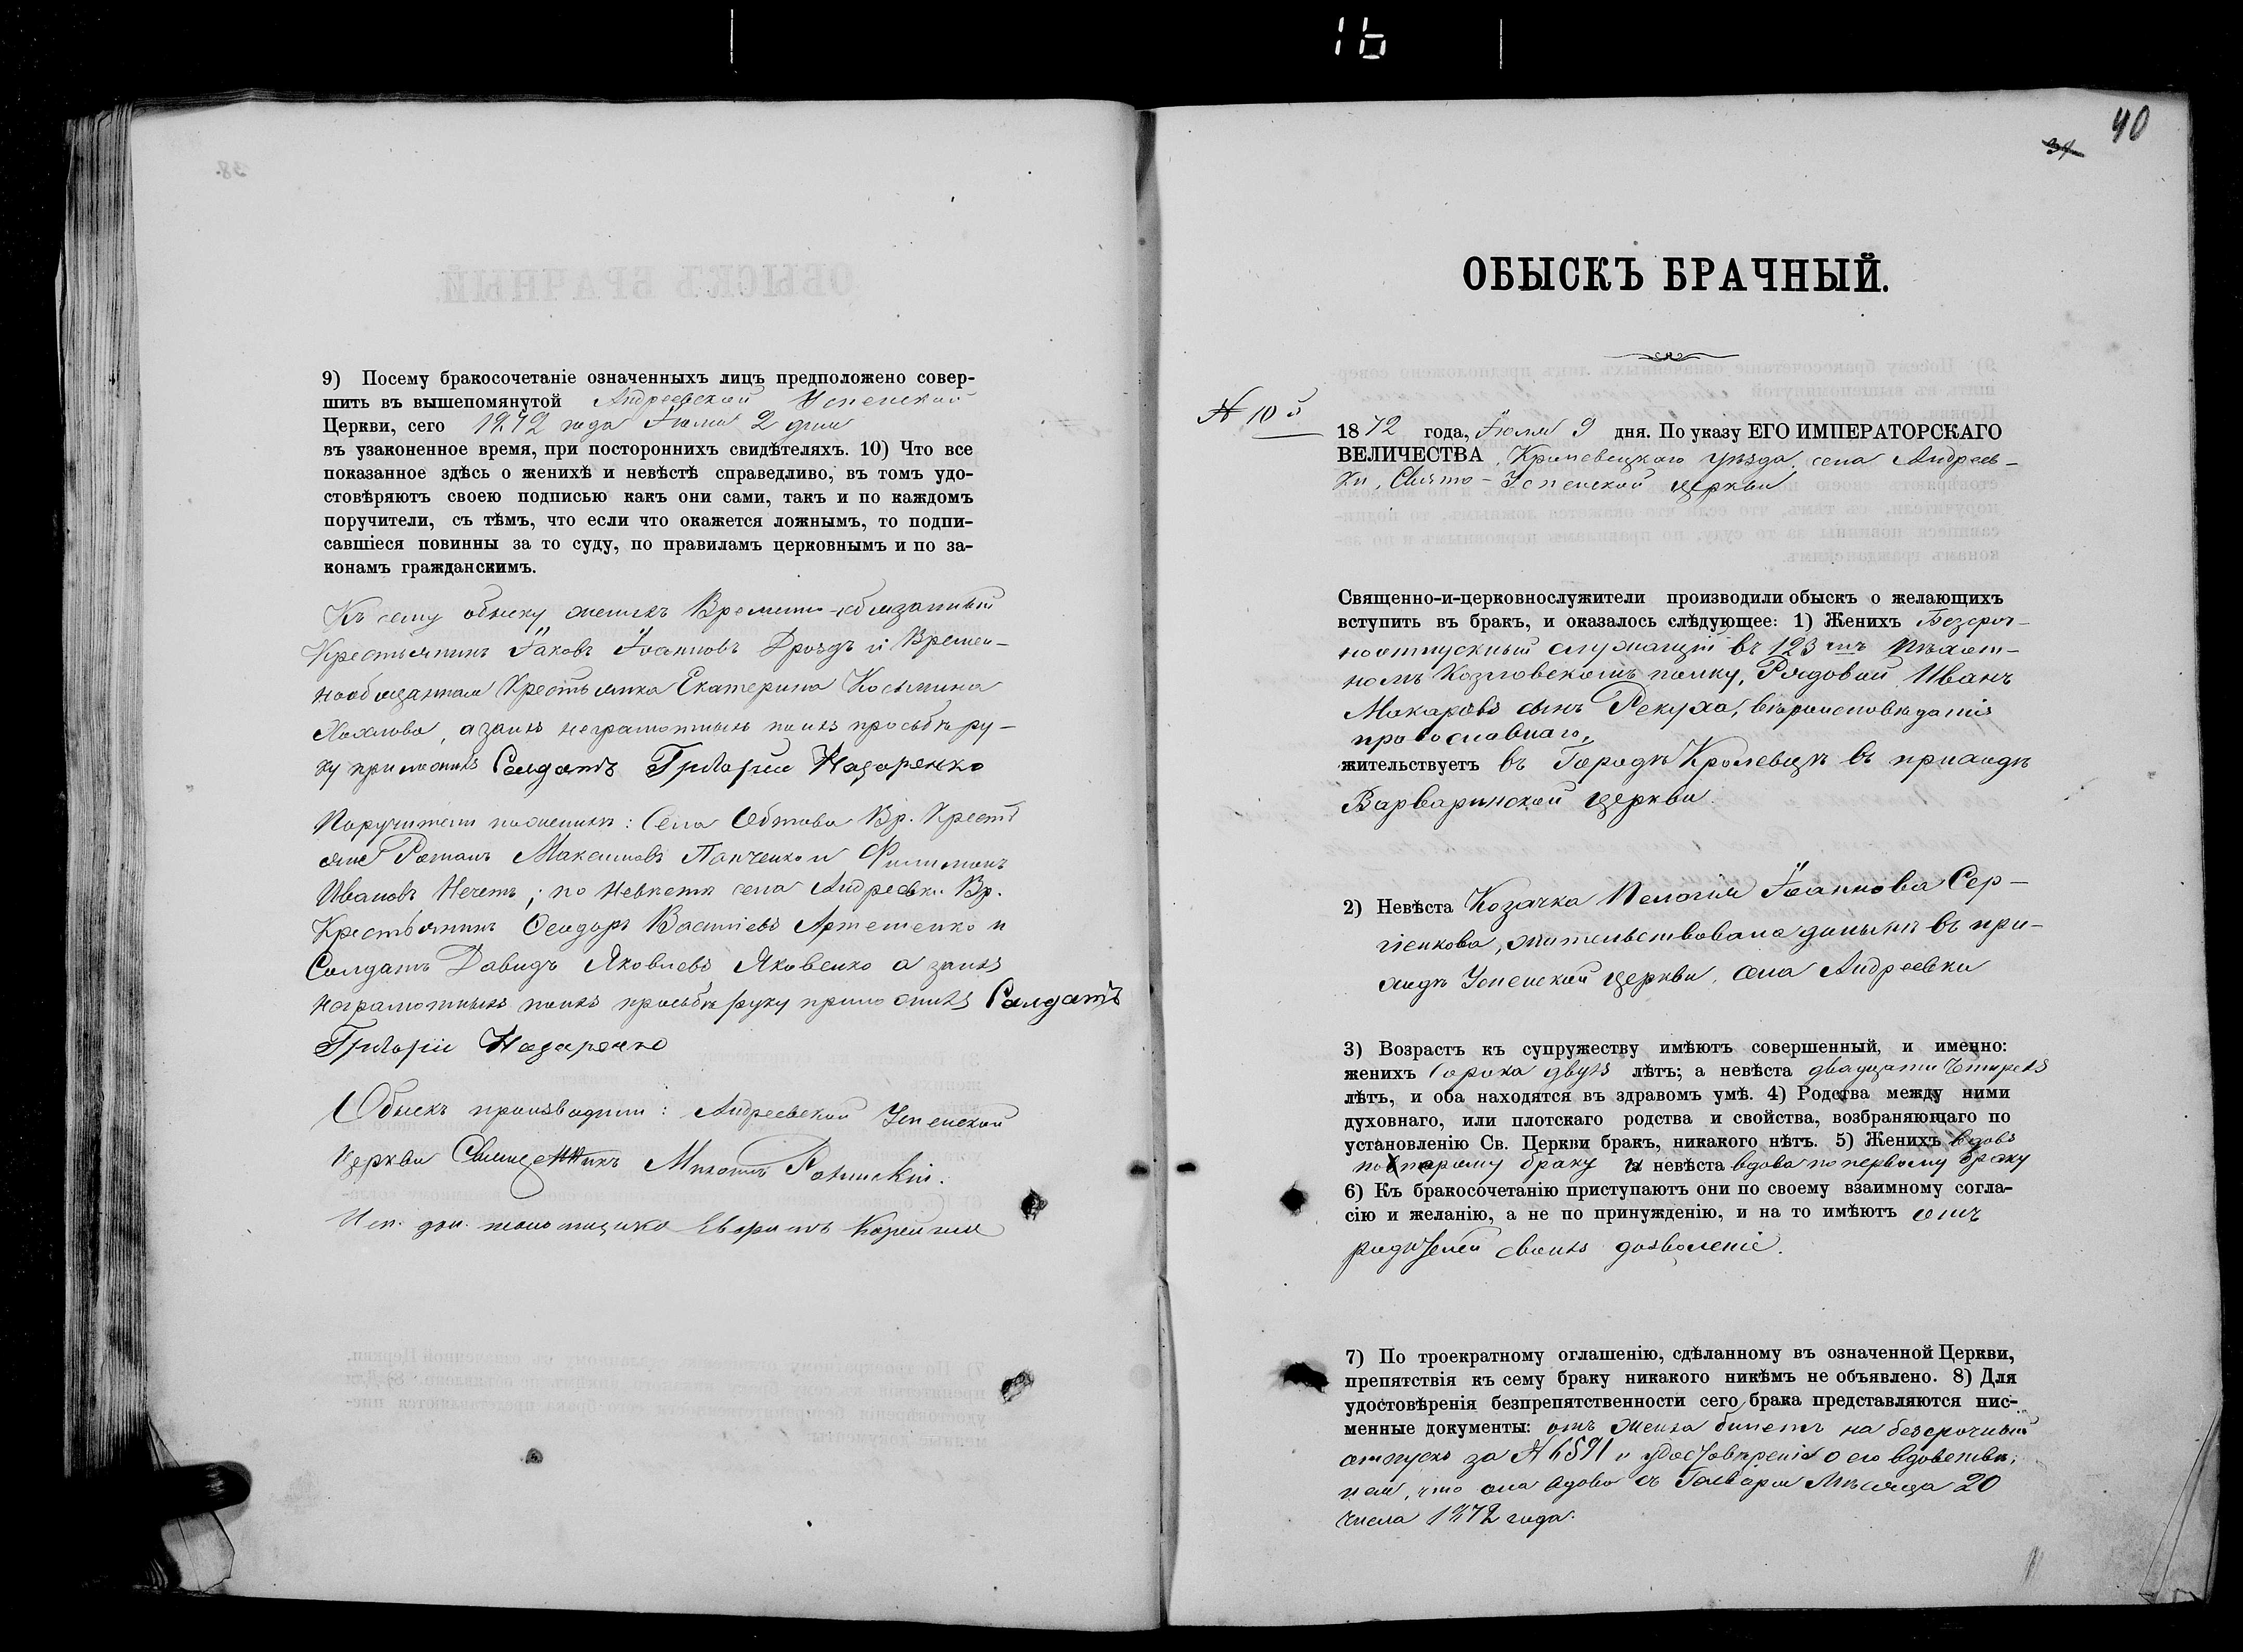 9) Посему бракосочетаніе означенныхъ лицъ предположено совер-
шить въ вышепомянутой Андреевской Успенской
Церкви, сего 1872 года Іюля 2 дня
въ узаконенное время, при постороннихъ свидѣтеляхъ. 10) Что все
показанное здѣсь о женихѣ и невѣстѣ справедливо, въ томъ удо-
стовѣряютъ своею подписью какъ они сами, такъ и по каждомъ
поручители, съ тѣмъ, что если что окажется ложнымъ, то подпи-
савшіеся повинны за то суду, по правиламъ церковнымъ и по за-
конамъ гражданскимъ.
Къ сему обыску женихъ Временно-обязанный
Крестьянинъ Іаковъ Іоанновъ Дроздъ и Времен-
нообязанная Крестьянка Екатерина Косьмина
Хохлова, а за нихъ неграмотныхъ по ихъ просьбѣ ру-
ку приложилъ Солдатъ Григорій Назаренко
Поручители по женихѣ: Села Обтова Вр. Кресть
яне Романъ Максимовъ Панченко и Филимонъ
Ивановъ Нечетъ; по невѣстѣ села Андреевки Вр.
Крестьянинъ Ѳеодоръ Васильевъ Артеменко и
Солдатъ Давидъ Яковлевъ Яковенко а за нихъ
неграмотныхъ по ихъ просьбѣ руку приложилъ Солдатъ
Григорій Назаренко
Обыскъ производили: Андреевской Успенской
Церкви Священникъ Михаилъ
Исп. дол. псаломщика
40
ОБЫСКЪ БРАЧНЫЙ.
№ 10й
1872 года, Іюля 9 дня. По указу ЕГО ИМПЕРАТОРСКАГО
ВЕЛИЧЕСТВА, Кролевецкаго уѣзда, села Андреев-
ки, Свято-Успенской церкви
Священно-и-церковнослужители производили обыскъ о желающихъ
вступить въ бракъ, и оказалось слѣдующее: 1) Женихъ Безсроч-
ноотпускный служащій въ 123мъ Пѣхот-
номъ Козловскомъ полку, Рядовой Иванъ
Макаровъ сынъ Рекуха, вѣроисповѣданія
православнаго,
жительствуетъ въ Городѣ Кролевцѣ въ приходѣ
Варваринской церкви.
2) Невѣста Козачка Пелагія Іоаннова Сер-
гіенкова, жительствовала донынѣ въ при-
ходѣ Успенской церкви, села Андреевки
3) Возрастъ къ супружеству имѣютъ совершенный, и именно:
женихъ сорока двухъ лѣтъ; а невѣста двадцати четырехъ
лѣтъ, и оба находятся въ здравомъ умѣ. 4) Родства между ними
духовнаго, или плотскаго родства и свойства, возбраняющаго по
установленію Св. Церкви бракъ, никакого нѣтъ. 5) Женихъ вдовъ
по второму браку а невѣста вдова по первому браку
6) Къ бракосочетанію приступаютъ они по своему взаимному согла-
сію и желанію, а не по принужденію, и на то имѣютъ отъ
родителей своихъ дозволеніе.
7) По троекратному оглашенію, сдѣланному въ означенной Церкви,
препятствія къ сему браку никакого никѣмъ не объявлено. 8) Для
удостовѣренія безпрепятственности сего брака представляются пис-
менные документы: отъ жениха билетъ на безсрочный
отпускъ за № 6591 и удостовѣреніе о его вдовствѣ;
что она вдова съ Генваря Мѣсяца 20
числа 1872 года.